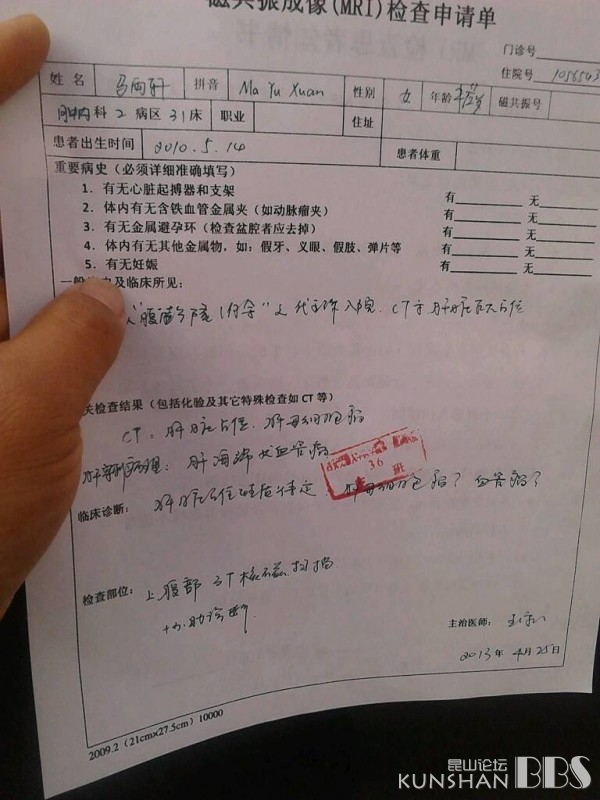 磁共振成像(MRI)检查申请单
门诊号
住院号 1056543
姓名 马雨轩 拼音 Ma Yu Xuan 性别 女 年龄 磁共振号
科 2 病区 31 床 职业 住址
患者出生时间 2010.5.14 患者体重
重要病史（必须详细准确填写）
1．有无心脏起搏器和支架 有 无
2．体内有无含铁血管金属夹（如动脉瘤夹） 有 无
3．有无金属避孕环（检查盆腔者应去掉） 有 无
4．体内有无其他金属物，如：假牙、义眼、假肢、弹片等 有 无
5．有无妊娠 有 无
及临床所见：
入院. CT示肝脏巨大占位
关检查结果（包括化验及其它特殊检查如 CT 等）
CT：肝脏占位. 肝母细胞瘤
肝海绵状血管瘤
36 班
临床诊断： 肝脏占位性质待定 肝母细胞瘤？ 血管瘤？
检查部位： 上腹部 3T核磁扫描
协助诊断
主治医师：
2013年 4月 25日
2009.2（21cmx27.5cm）10000
昆山论坛
KUNSHAN BBS